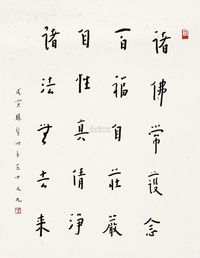 諸佛常護念
百福自莊嚴
自性真清淨
諸法無去來
戊寅 時年五十又九